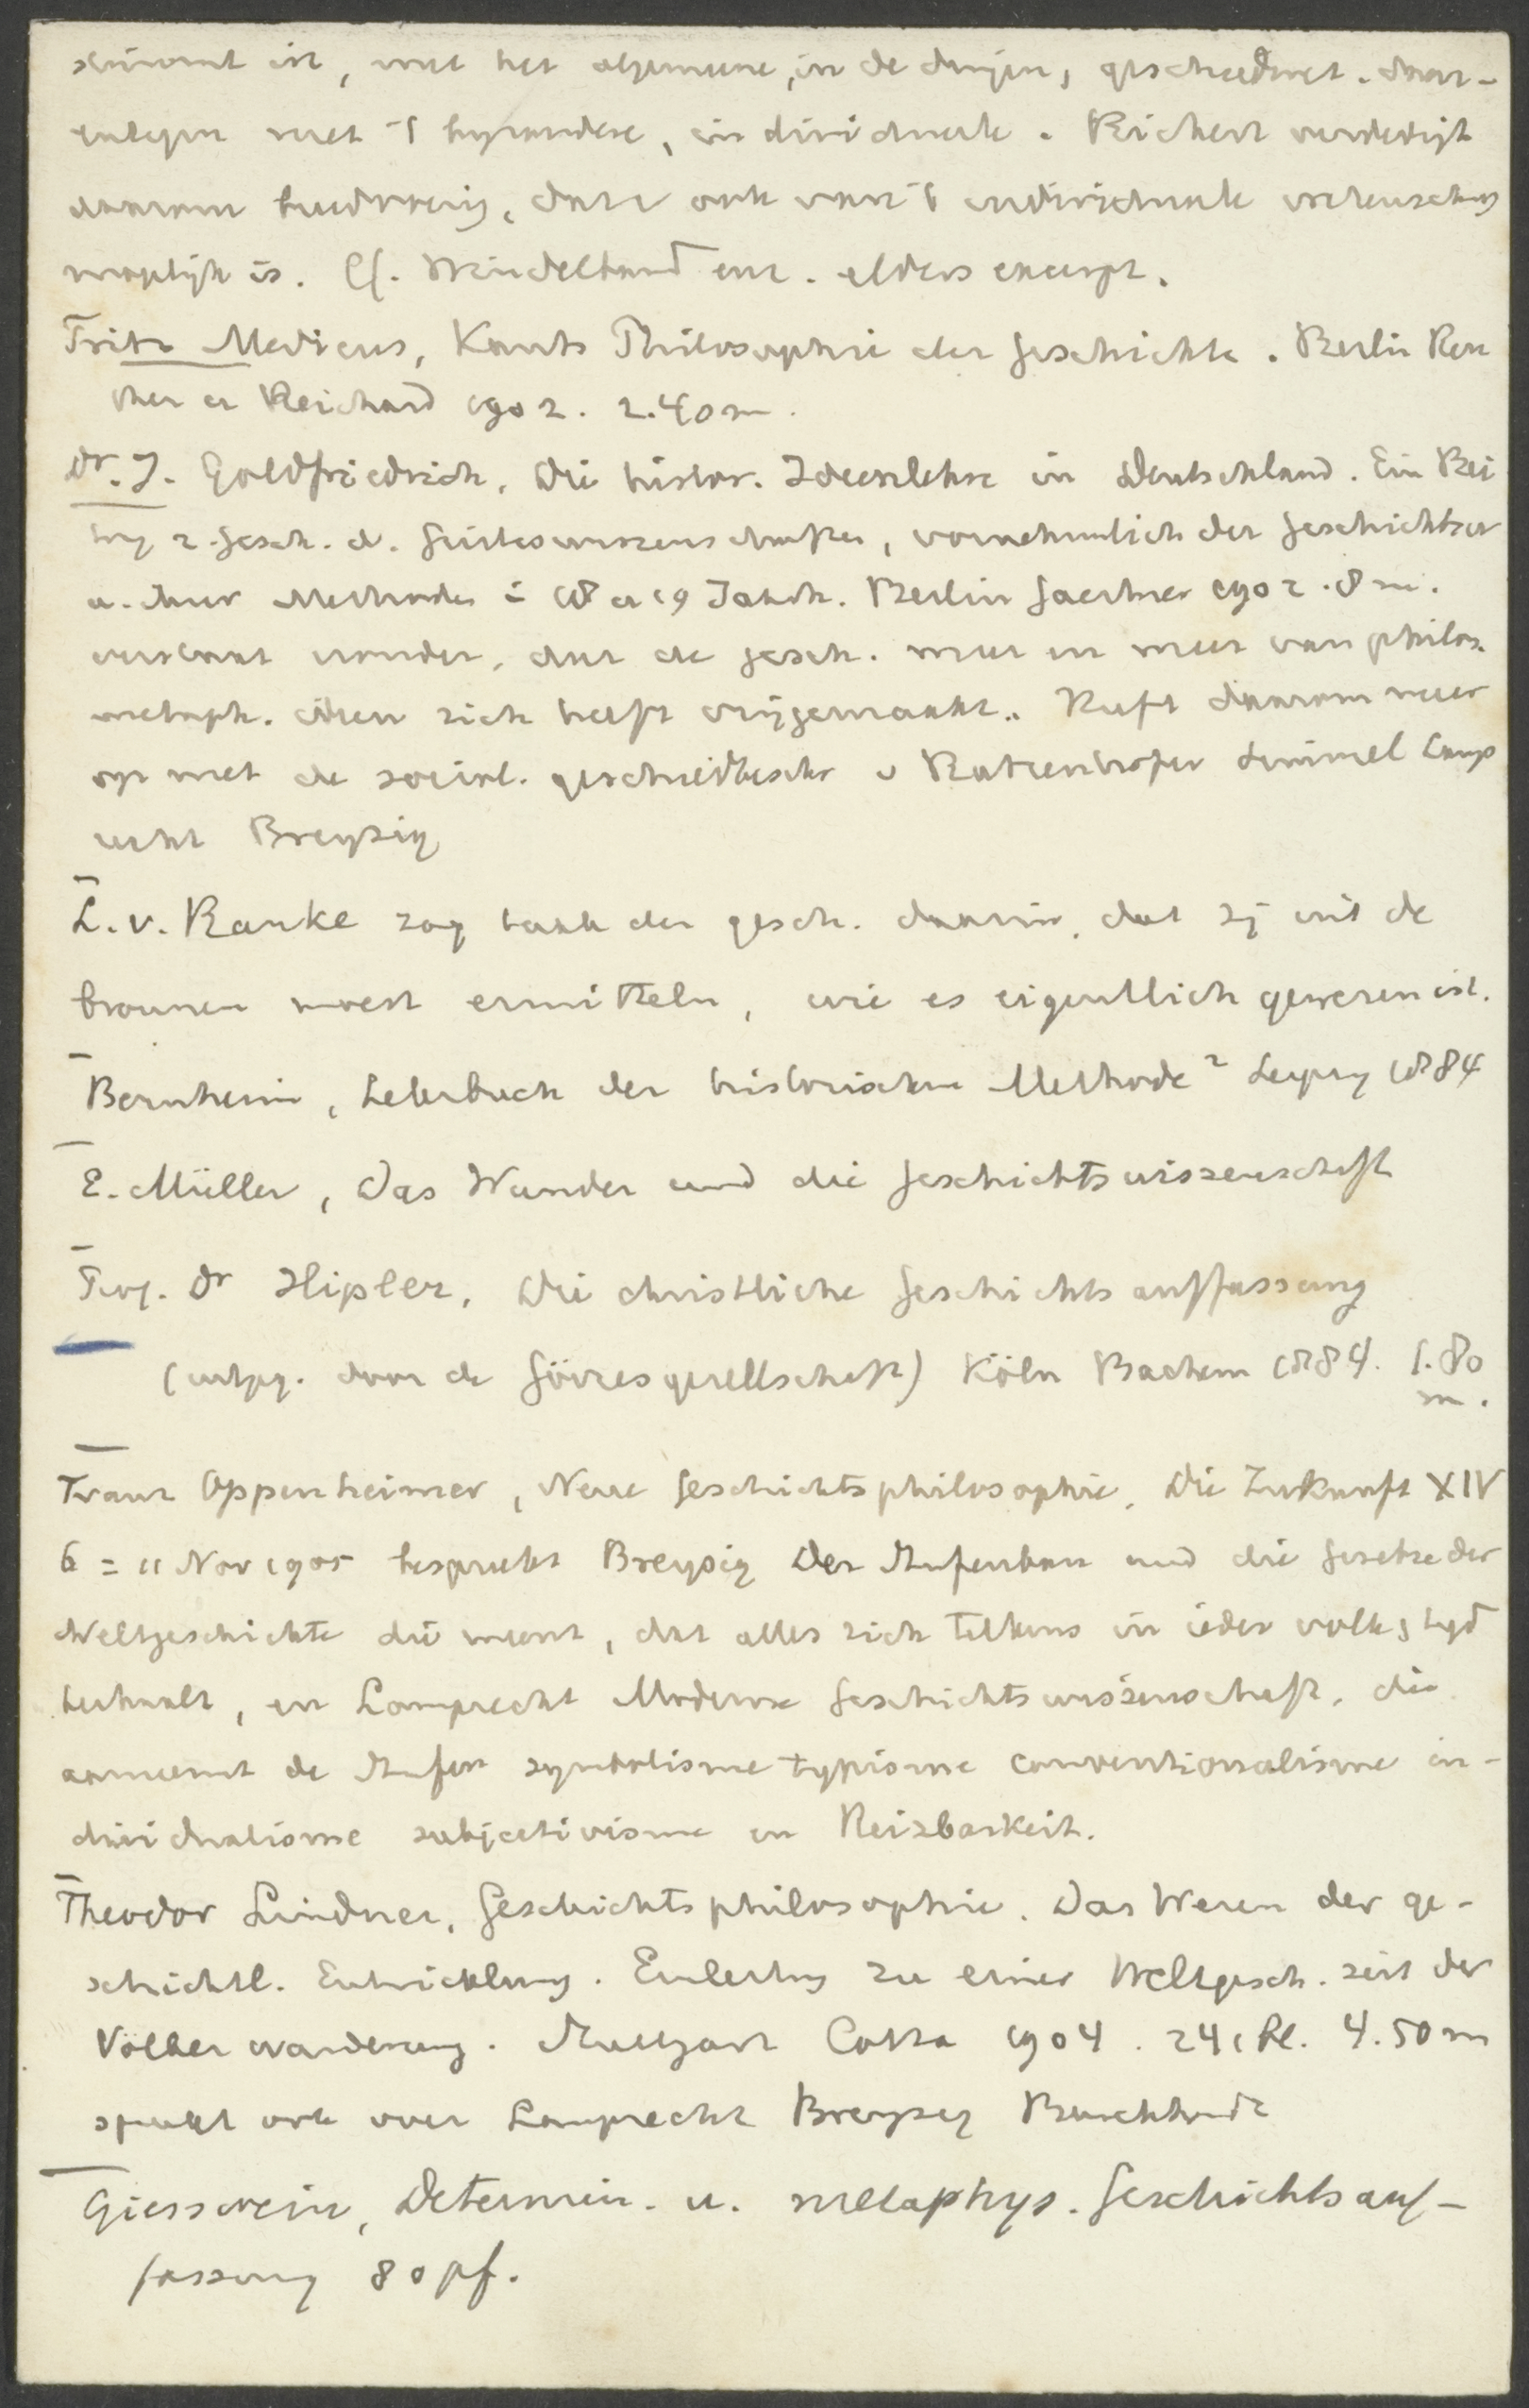 stroomt is, met het algemeene in de dingen, geschiedwet. daar-
entegen met 't byzondere, individueele. Rickert verdedigt
daarom breedvoerig, dat er ook van 't individueele wetenschap
mogelijk is. Cf. Windelband enz. elders excerpt.
Fritz Medicus, Kants Philosophie der Geschichte. Berlin Reu
ther et Reichard 1902. 2.40 m.
Dr. J. Goldfriedrich, Die histor. Ideenlehre in Deutschland. Ein Bei
trag z. Gesch. d. Geisteswissenschaften, vornehmlich der Geschichtswi
u. ihrer Methoden i 18 et 19 Jahrh. Berlin Gaertner 1902. 8 m.
dat de gesch. meer en meer van philos.
metaph. ideen zich heeft vrijgemaakt. Ruft daarom
op met de social. geschiedbesch. v Ratzenhofer Simmel Lamp
recht Breysig
L. v. Ranke zag taak der gesch. daarin, dat zij uit de
bronnen moest ermitteln, wie es eigentlich gewesen ist.
Bernheim, Lehrbuch der historischen Methode ² Leipzig 1884
E. Müller, Das Wunder und die Geschichtswissenschaft
Prof. Dr Hipler, Die christliche Geschichtsauffassung
(uitgeg. door de Görresgesellschaft) Köln Bachem 1884. 1.80
m.
Franz Oppenheimer, Neue Geschichtsphilosophie. Die Zukunft XIV
6 = 11 Nov 1905 bespreekt Breysig Der Stufenbau und die Gesetze der
Weltgeschichte die meent, dat alles zich telkens in ieder volk, tyd
herhaalt, en Lamprecht Moderne Geschichtswissenschaft, die
aanneemt de Stufen symbolisme typisme conventionalisme in-
dividualisme subjectivisme en Reizbarkeit.
Theodor Lindner, Geschichtsphilosophie. Das Wesen der ge-
schichtl. Entwicklung. Einleitung zu einer Weltgesch. seit der
Völkerwanderung. Stuttgart Cotta 1904. 241 bl. 4.50 m
spreekt ook over Lamprecht Breysig Burckhardt
Giesswein, Determin. u. metaphys. Geschichtsauf-
fassung 80 pf.